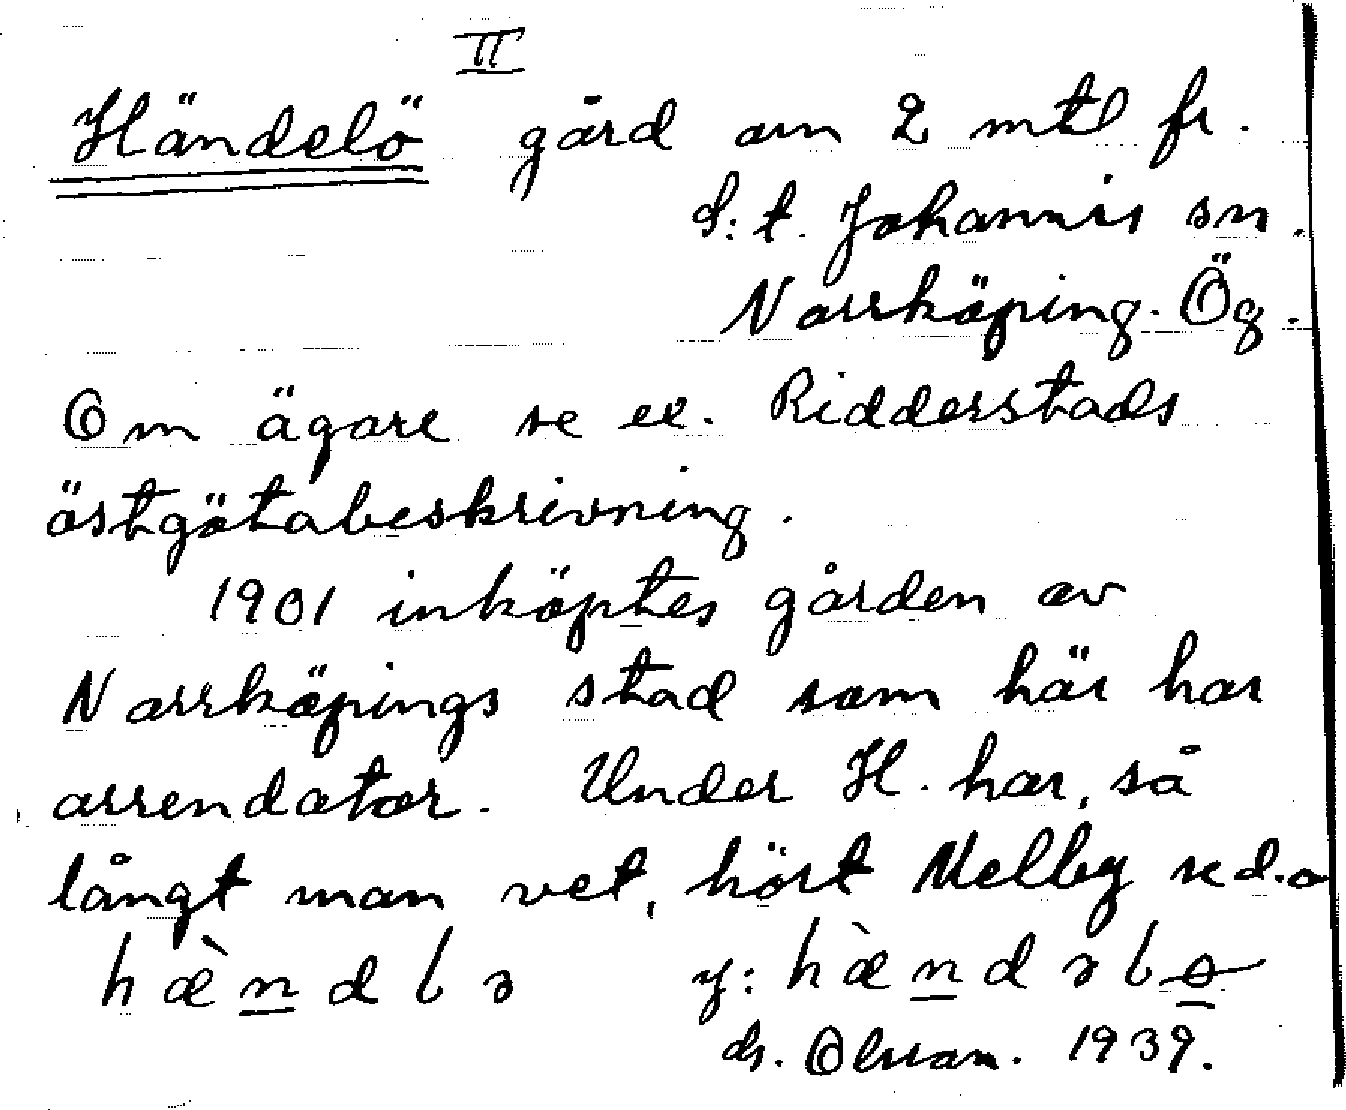 II
Händelö gård om 2 mtl fr.
S:t. Johannis sn.
Norrköping. Ög.
Om ägare se ex. Ridderstads
östgötabeskrivning.
1901 inköptes gården av
Norrköpings stad som här har
arrendator. Under H. har, så
långt man vet, hört Melby se d.o
hæ̀n̲dlə y: hæ̀n̲dəlɵ̲
ds. Olsson. 1939.